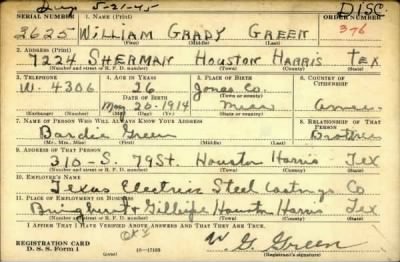 Dup 5-21-45 DISC.
SERIAL NUMBER 1. NAME (Print) ORDER NUMBER
2625 WILLIAM GRADY GREEN 376
(First) (Middle) (Last)
2. ADDRESS (Print)
7224 SHERMAN HOUSTON HARRIS TEX
(Number and street or R. F. D. number) (Town) (County) (State)
3. TELEPHONE 4. AGE IN YEARS 5. PLACE OF BIRTH 6. COUNTRY OF CITIZENSHIP
W. 4306 26 Jones Co.
DATE OF BIRTH
May 20-1914 Miss Amer.
(Exchange) (Number) (Mo.) (Day) (Yr.) (State or country)
7. NAME OF PERSON WHO WILL ALWAYS KNOW YOUR ADDRESS 8. RELATIONSHIP OF THAT PERSON
Bardie Green Brother
(Mr., Mrs., Miss) (First) (Middle) (Last)
9. ADDRESS OF THAT PERSON
310-S. 79St. Houston Harris Tex
(Number and street or R. F. D. number) (Town) (County) (State)
10. EMPLOYER'S NAME
Texas Electric Steel Castings Co
11. PLACE OF EMPLOYMENT OR BUSINESS
Bringhurst & Gillespie Houston Harris Tex
(Number and street or R. F. D. number) (Town) (County) (State)
I AFFIRM THAT I HAVE VERIFIED ABOVE ANSWERS AND THAT THEY ARE TRUE.
REGISTRATION CARD
D. S. S. Form 1
(over) 16-17105
W G Green
(Registrant's signature)